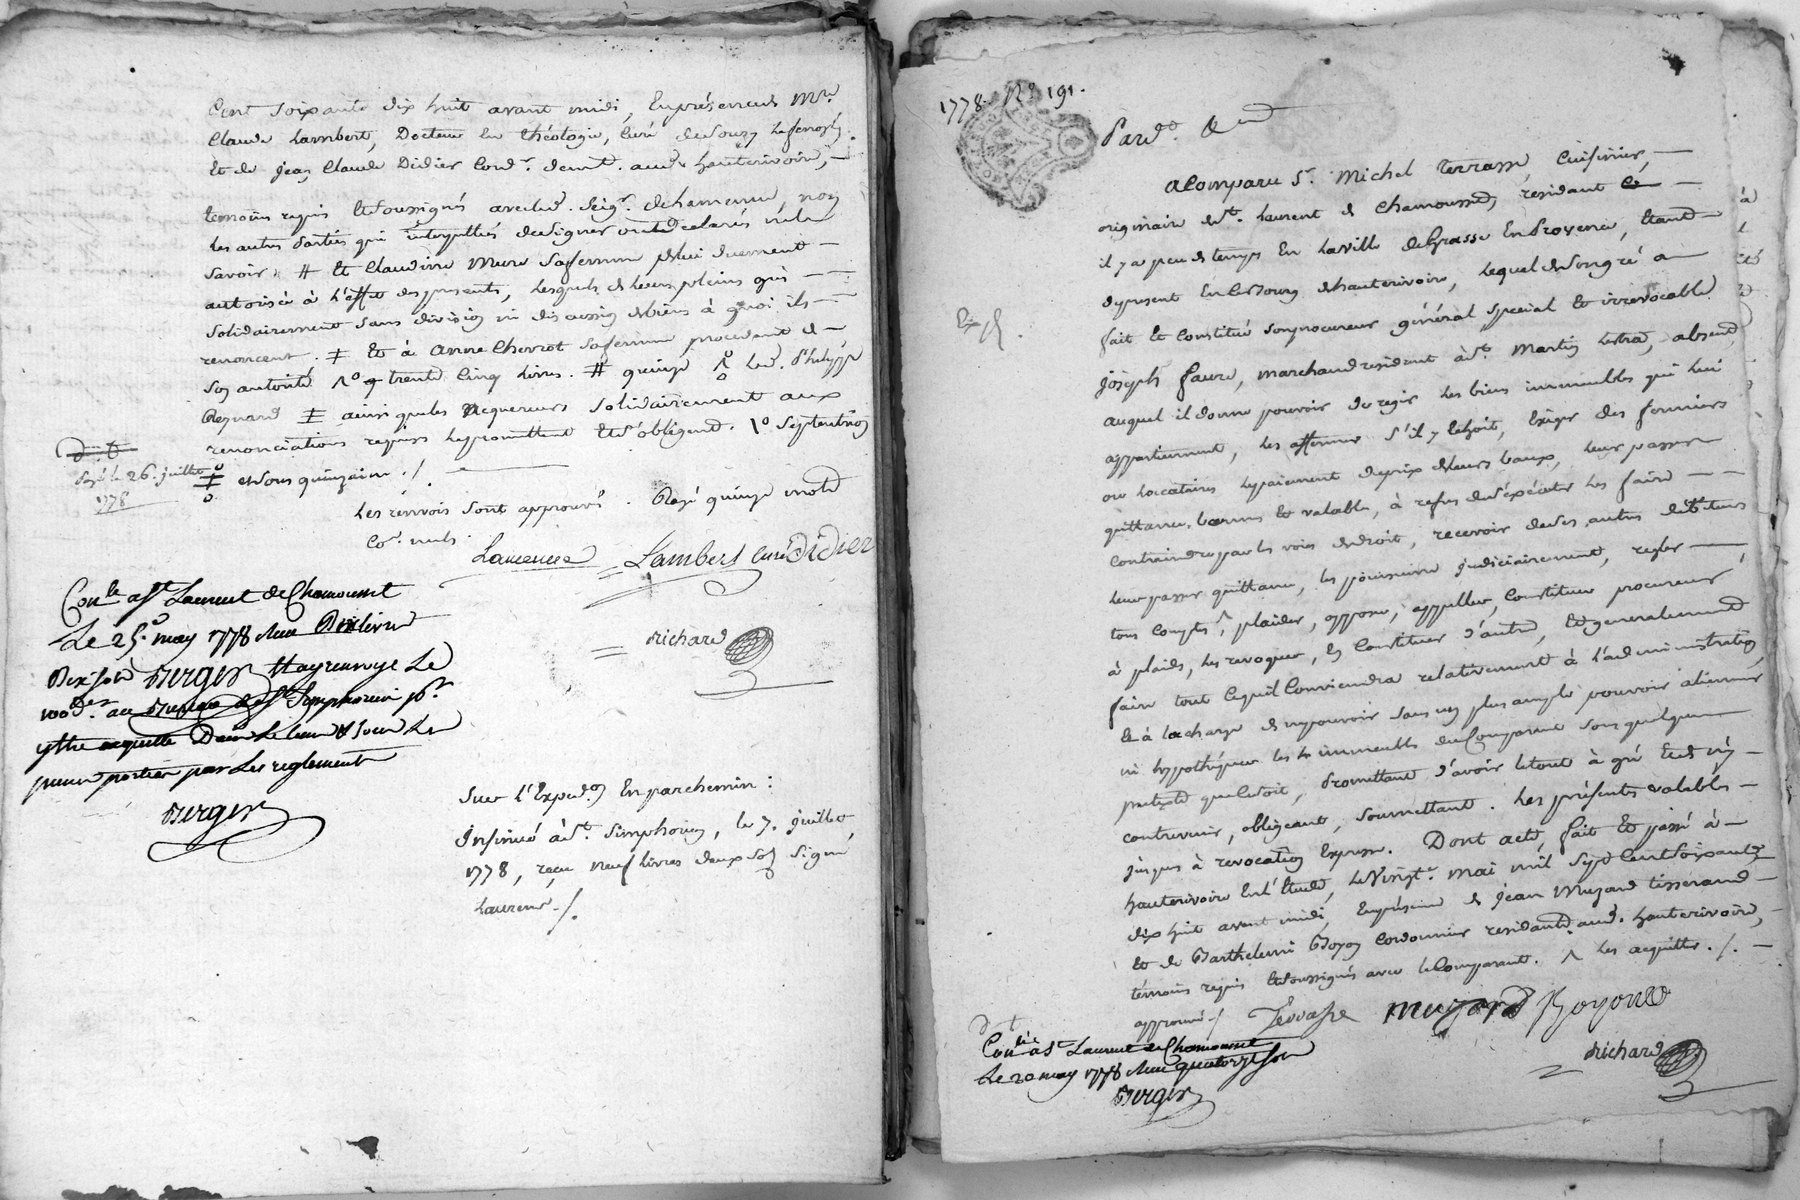 Cent soixante dix huit avant midi, En présence de Mre.
Claude Lambert, Docteur en théologie, Curé de Souzy
Et de Jean Claude Didier Cord.r demt. aud. hauterivoire,
temoins requis et soussignés avec led. Seigr.
les autres parties qui interpellés de signer ont déclaré ne le
savoir # Et Claudine Mure sa femme de lui duement
autorisée à l'effet des présentes, lesquels de leurs pleins grés
solidairement sans division ni discussion de biens à quoi ils
renoncent. ‡ Et à Anne Chevrot sa femme procedant de
son autorité trente cinq livres. # quinze led. Philippe
Reynard ‡ ainsi que les acquereurs solidairement aux
renonciations requises le promettent et s'obligent. septentrion
et sous quinzaine ./.
26. juillet
1778
Les renvois sont approuvés. Rayé quinze mots
comme nuls.
Laurencie Lambert curé Didier
richard
Conlé a St Laurent de Chamousset
Le 25. may 1778
Dix sols Berger
St Simphorien
par Les reglements
Berger
Sur l'Expedon. En parchemin :
Insinué à St. Simphorien, le 7. juillet
1778, reçu neuf livres deux sols signé
Laurens ./.
1778. No 191.
Pard.
A Comparu Sr. Michel Terrasse, Cuisinier,
originaire de St. Laurent de Chamousset, residant
il y a peu de temps En la ville de Grasse En Provence, Etant
à present En ce Bourg d'hauterivoire, lequel de son gré a
fait et Constitué son procureur général special Et irrevocable
Joseph faure, marchand residant à St. Martin Lestra, absent,
auquel il donne pouvoir de regir les biens immeubles qui lui
appartiennent, les affermer s'il y Echoit, Exiger des fermiers
ou locataires le paiement du prix de leurs baux, leur passer
quittances bonnes Et valables, à refus de s'exécuter les faire
contraindre par les voies de droit, recevoir de ses autres débiteurs
leur passer quittance, les poursuivre judiciairement, regler
tous comptes, plaider, opposer, appeller, Constituer procureurs
à plaids, les revoquer, En Constituer d'autres, Et generalement
faire tout ce qu'il Conviendra relativement à l'administration
Et à la charge de ne pouvoir sans un plus ample pouvoir aliener
ni hypothéquer les immeubles du Comparant sous quelque
pretexte que ce soit, Promettant d'avoir le tout à gré Et de n'y
contrevenir, obligeant, soumettant. Les présentes valables
jusques à revocation Expresse. Dont acte, fait Et passé à
hauterivoire En l'Etude, le Vingt. mai mil Sept Cent soixante
dix huit avant midi, En présence de Jean Muzard tisserand
Et de Barthelemi Boyon Cordonnier residants aud. hauterivoire,
témoins requis Et soussignés avec le Comparant. les acquitter ./.
approuvé ./. Terrasse Muzard Boyond
richard
Conlé a St Laurent de Chamousset
Le 20 may 1778 Reçu quatorze sols
Berger